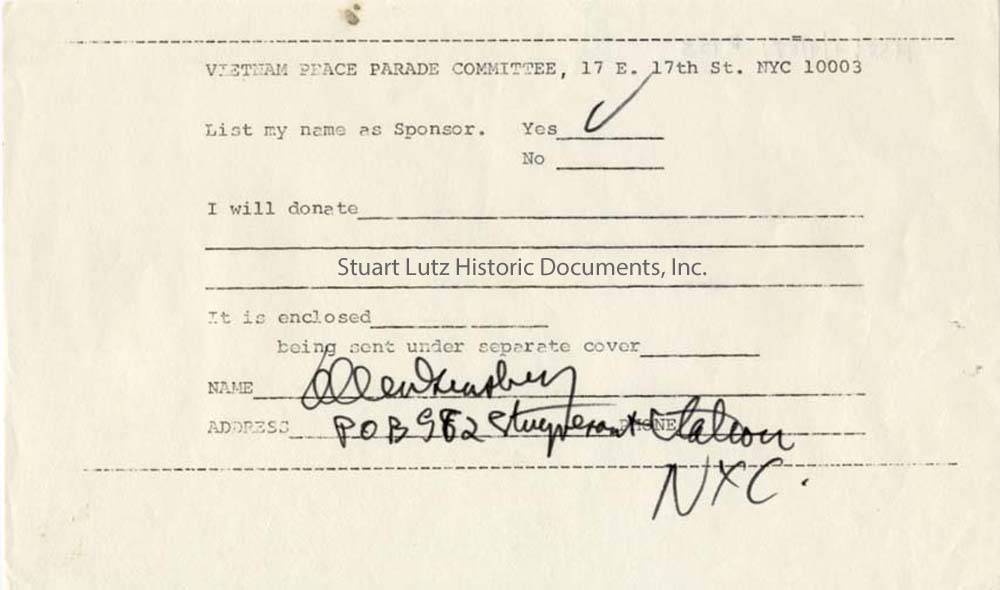 VIETNAM PEACE PARADE COMMITTEE, 17 E. 17th St. NYC 10003
List my name as Sponsor. Yes ✓
No
I will donate
Stuart Lutz Historic Documents, Inc.
It is enclosed
being sent under separate cover
NAME Allen Ginsberg
ADDRESS POB 982 Stuyvesant Station PHONE
NYC.